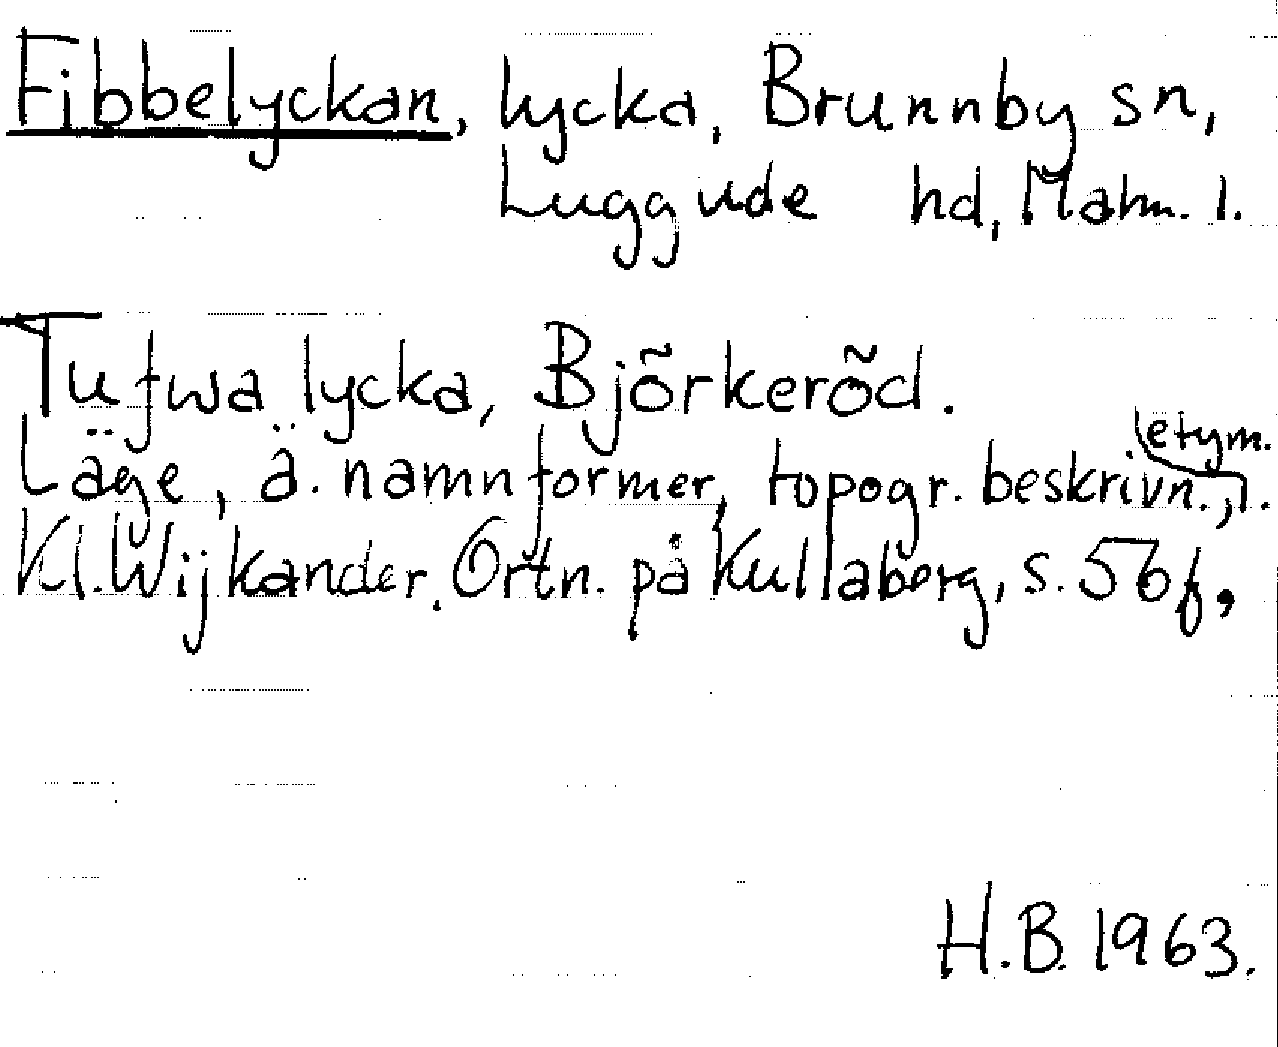 Fibbelyckan, lycka, Brunnby sn,
Luggude hd, Malm. l.
Tufwa lycka, Björkeröd.
Läge, ä. namnformer, topogr. beskrivn., etym. i.
Kl. Wijkander. Ortn. på Kullaberg, s. 56f,
H.B. 1963.